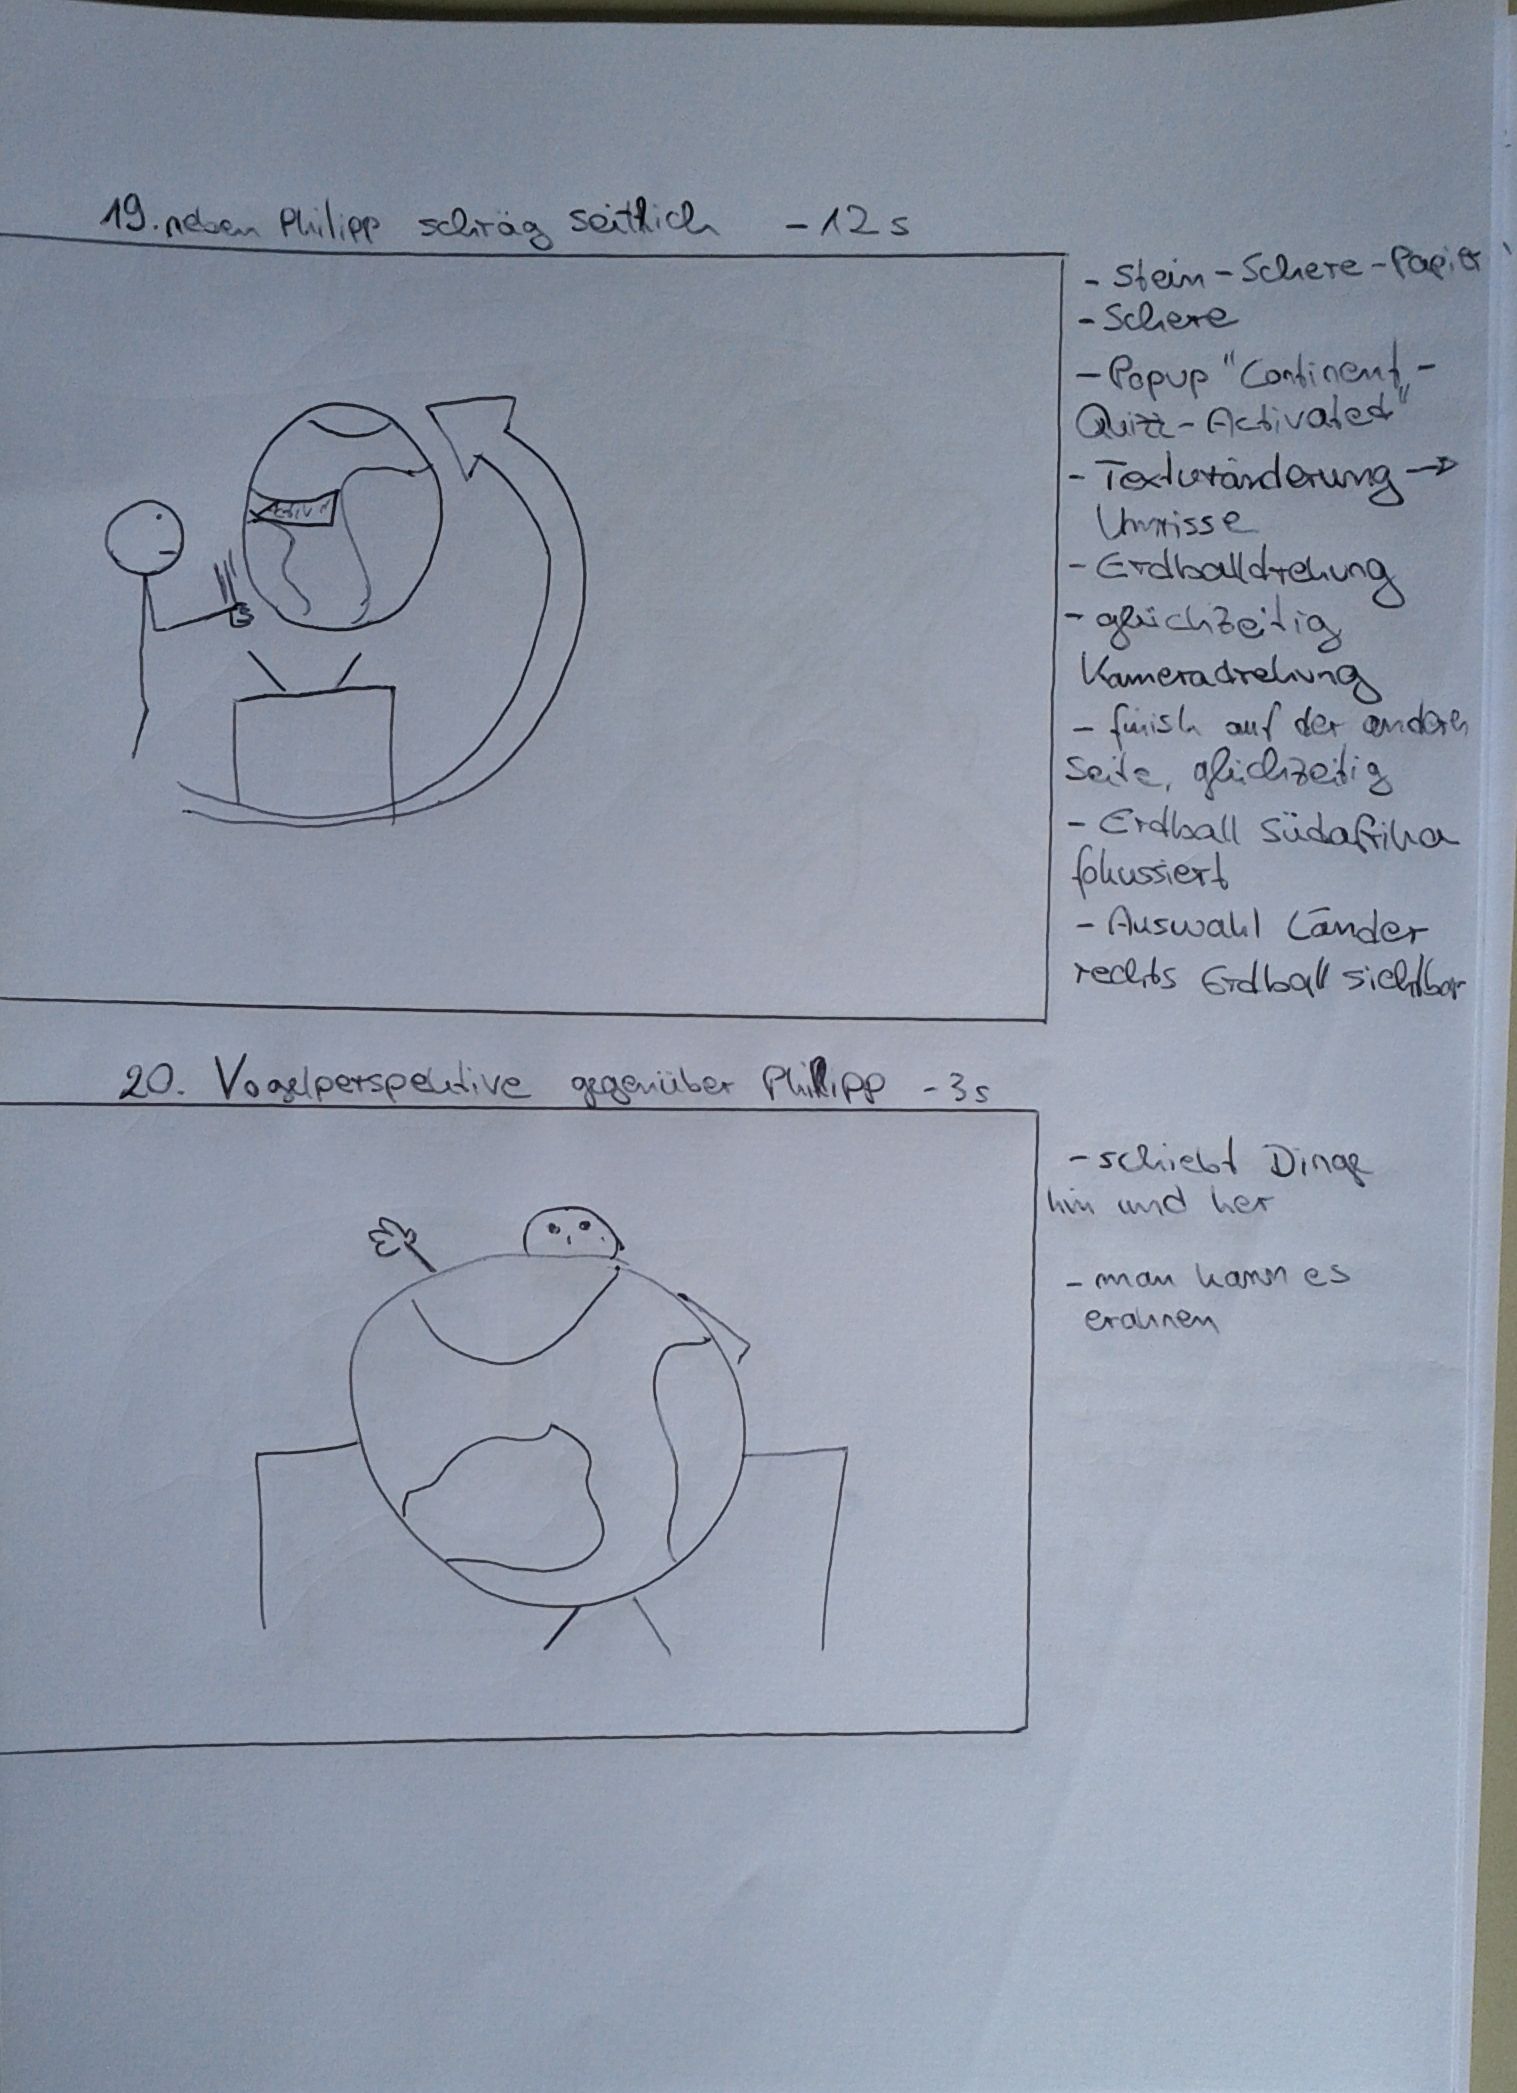 19. neben Philipp schräg seitlich - 12 s
- Stein - Schere - Papier
- Schere
- Popup "Continent -
Quizz - Activated"
- Texturänderung →
Umrisse
- Erdballdrehung
- gleichzeitig
Kameradrehung
- finish auf der andern
Seite, gleichzeitig
- Erdball Südafrika
fokussiert
- Auswahl Länder
rechts Erdball sichtbar
20. Vogelperspektive gegenüber Philipp - 3 s
- schiebt Dinge
hin und her
- man kann es
erahnen